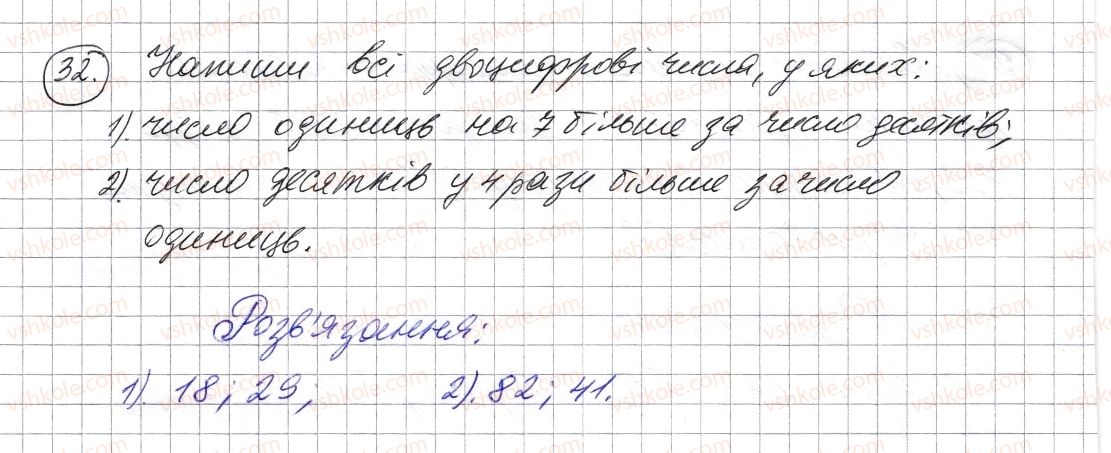 32. Напиши всі двоцифрові числа, у яких:
1). число одиниць на 7 більше за число десятків;
2). число десятків у 4 рази більше за число
одиниць.
Розв'язання:
1). 18; 29; 2). 82; 41.